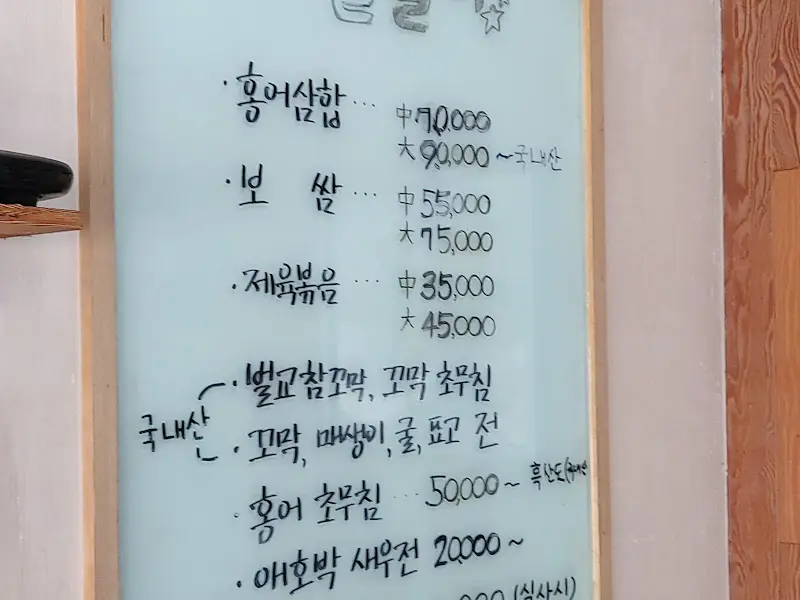 · 홍어삼합 ··· 中 70,000
大 90,000 ~국내산
· 보 쌈 ··· 中 55,000
大 75,000
· 제육볶음 ··· 中 35,000
大 45,000
· 벌교참꼬막, 꼬막 초무침
국내산
· 꼬막, 매생이, 굴, 표고 전
· 홍어 초무침 ··· 50,000 ~ 흑산도
· 애호박 새우전 20,000 ~
(식사시)